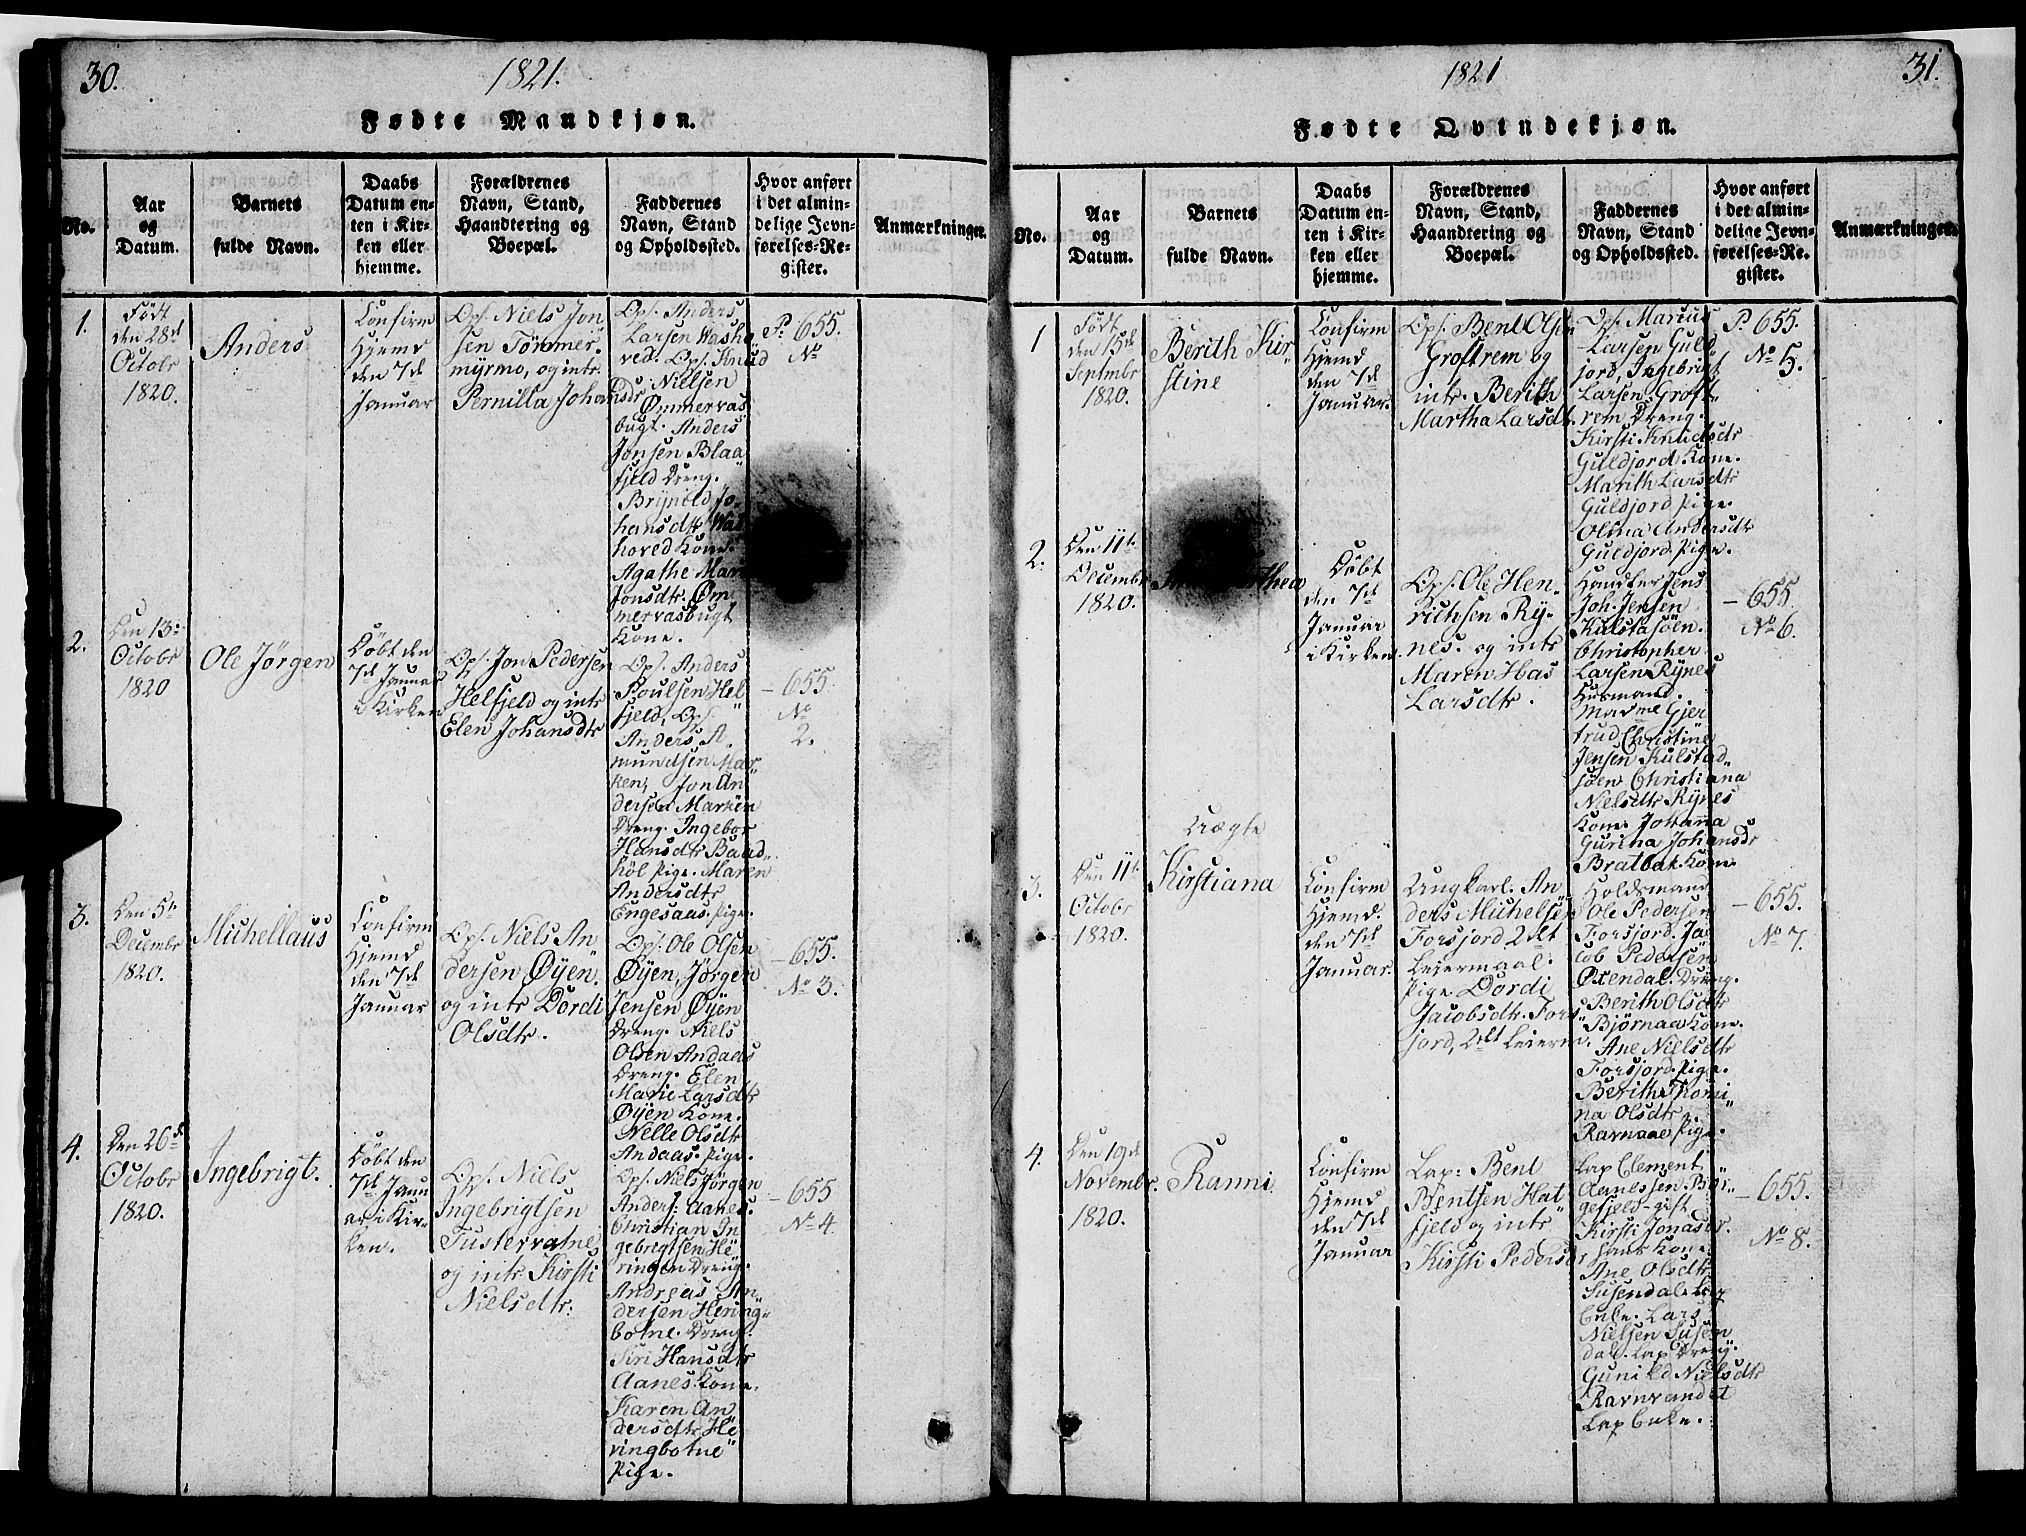 30.
1821.
Fødte Mandkjøn.
No.
Aar
og
Datum.
Barnets
fulde Navn.
Daabs
Datum en-
ten i Kir-
ken eller
hjemme.
Forældrenes
Navn, Stand,
Haandtering og
Boepæl.
Faddernes
Navn, Stand
og Opholdssted.
Hvor anført
i det almin-
delige Jevn-
førelses-Re-
gister.
Anmærkninger.
1.
Født
den 28de
Octobr
1820.
Anders
Confirm
Hjemd
den 7de
Januar
Ops. Niels Jon
sen Tömmer-
myrmo, og intr.
Pernilla Johansdr
Ops. Anders
Larsen Washo
ved. Ops. Knud
Nielsen
Ømmervas
bugt. Anders
Jonsen Blaa
fjeld Dreng.
Brynild Jo-
hansdtr Was
hoved Kone.
Agathe Mar
Jonsdtr. Øm
mervasbugt
Kone.
P. 655.
No
2.
Den 13de
Octobr
1820
Ole Jörgen
Döbt den
7de Januar
i Kirken
Ops. Jon Pedersen
Helfjeld og intr
Elen Johansdtr
Ops. Anders
Poulsen Hel
fjeld, Ops.
Anders A.
mundsen Mar
ken, Jon An
dersen Marken
Dreng. Ingebor
Hansdtr Baad
höl Pige. Maren
Andersdtr
Engesaas. Pige.
- 655.
No
2.
3.
Den 5te
Decembr
1820.
Michellaus
Confirm
Hjemd
den 7de
Januar
Ops. Niels An
dersen Øyen.
og intr Dordi
Olsdtr.
Ops. Ole Olsen
Øyen, Jörgen
Jensen Øyen
Dreng. Niels
Olsen Andaas
Dreng. Elen
Marie Larsdtr
Øyen Kone.
Nelle Olsdtr
Andaas. Pige.
- 655.
No 3.
4.
Den 26de
Octobr
1820.
Ingebrigt.
Döbt den
7de Janu
ar i Kir-
ken.
Ops. Niels
Ingebrigtsen
Tustervatne
og intr Kirsti
Nielsdtr:
Ops. Niels Jörgen
Anders: Aanes.
Christian In
gebrigtsen He
ringen Dreng.
Andreas An
dersen Hering-
botne. Dreng.
Siri Hansdtr
Aanes Kone.
Karen An
dersdtr He
ringbotne
Pige.
- 655
No 4
31.
1821
Fødte Qvindekjøn.
No.
Aar
og
Datum.
Barnets
fulde Navn.
Daabs
Datum en-
ten i Kir-
ken eller
hjemme.
Forældrenes
Navn, Stand,
Haandtering og
Boepæl.
Faddernes
Navn, Stand
og Opholdssted.
Hvor anført
i det almin-
delige Jevn-
førelses-Re-
gister.
Anmærkninger.
1
Født
den 15de
Septembr
1820.
Berith Kir
stine
Confirm
Hjemd
den 7de
Januar.
Ops. Bent Olsen
Groftrem og
intr. Berith
Martha Larsdtr.
Ops. Marcus
Larsen Guld
jord, Ingebrigt
Larsen Groft
rem Dreng.
Kirsti Knudsdtr
Guldjord Kone.
Marith Larsdtr
Guldjord Pige.
Olina Andersdtr
Guldjord. Pige.
P. 655.
No 5.
2.
Den 11te
Decembr
1820.
Döbt
den 7de
Januar
i Kirken.
Ops. Ole Hen
richsen Ry-
nes. og intr
Maren Has
Larsdtr.
Handler Jens
Joh. Jensen
Kulstasöen.
Christopher
Larsen Rynes
Husmand.
Madme Gjer
trud Christine
Jensen Kulstad-
söen Christiana
Nielsdtr Rynes
Kone Johanna
Gurina Johansdr
Bratbak Kone
- 655
No 6.
3.
Den 11te
Octobr
1820.
Uægte
Kirstiana
Confirm
Hjemd.
den 7de
Januar.
Ungkarl. An
ders Michelsen
Forsjord 2det
Leiermaal.
Pige Dordi
Jacobsdtr. Fors
jord, 2det Leierm.
Holdsmand
Ole Pedersen
Forsjord. Ja
cob Pedersen
Øxendal. Dreng.
Berith Olsdtr
Bjørnaa Kone.
Ane Nielsdtr
Forsjord. Pige.
Berith Thomi
na Olsdtr
Ravnaae Pige.
- 655.
No 7.
4.
Den 19de
Novembr.
1820.
Ranni
Confirm
Hjemd
den 7de
Januar
Lap: Bent
Bentsen Hat
fjeld og intr
Kirsti Pedersdr
Lap Clement
Aanessen Bör
gefjeld - gift
Kirsti Jonasdr
hans Kone.
Ane Olsdtr
Susendal Lap
Enke. Lars
Nielsen Susen
dal. Lap Dreng.
Gunild Nielsdtr
Ravnvandet
Lap Enke.
- 655.
No 8.